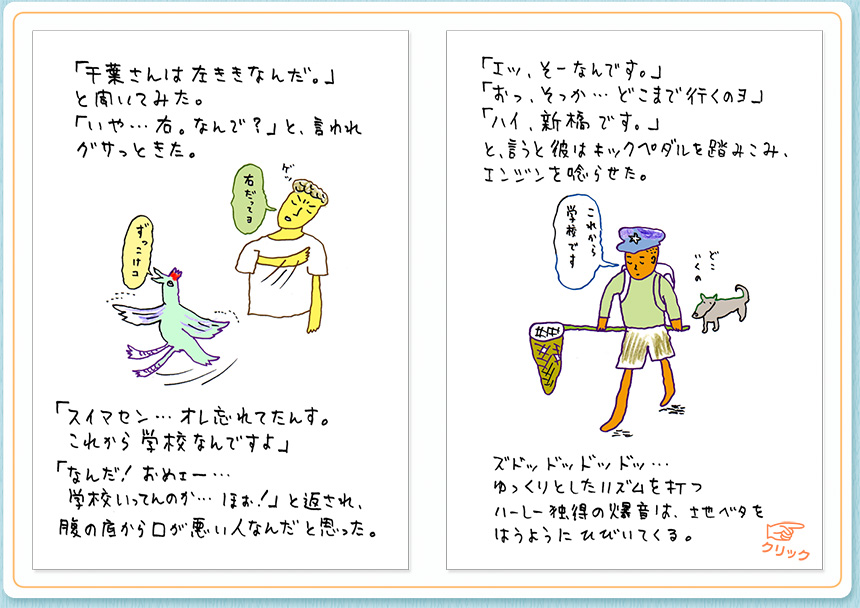 「千葉さんは左ききなんだ。」
と聞いてみた。
「いや…右。なんで?」と、言われ
グサっときた。
ゲッ
右だってヨ
ずっこけコ
「スイマセン… オレ忘れてたんす。
これから学校なんですよ」
「なんだ! おめェー…
学校いってんのか… ほぉ!」と返され、
腹の底から口が悪い人なんだと思った。
「エッ、そーなんです。」
「おっ、そっか… どこまで行くのヨ」
「ハイ、新橋です。」
と、言うと彼はキックペダルを踏みこみ、
エンジンを唸らせた。
これから
学校です
どこ
いくの
ズドッ ドッ ドッ ドッ…
ゆっくりとしたリズムを打つ
ハーレー独得の爆音は、土地ベタを
はうように ひびいてくる。
クリック